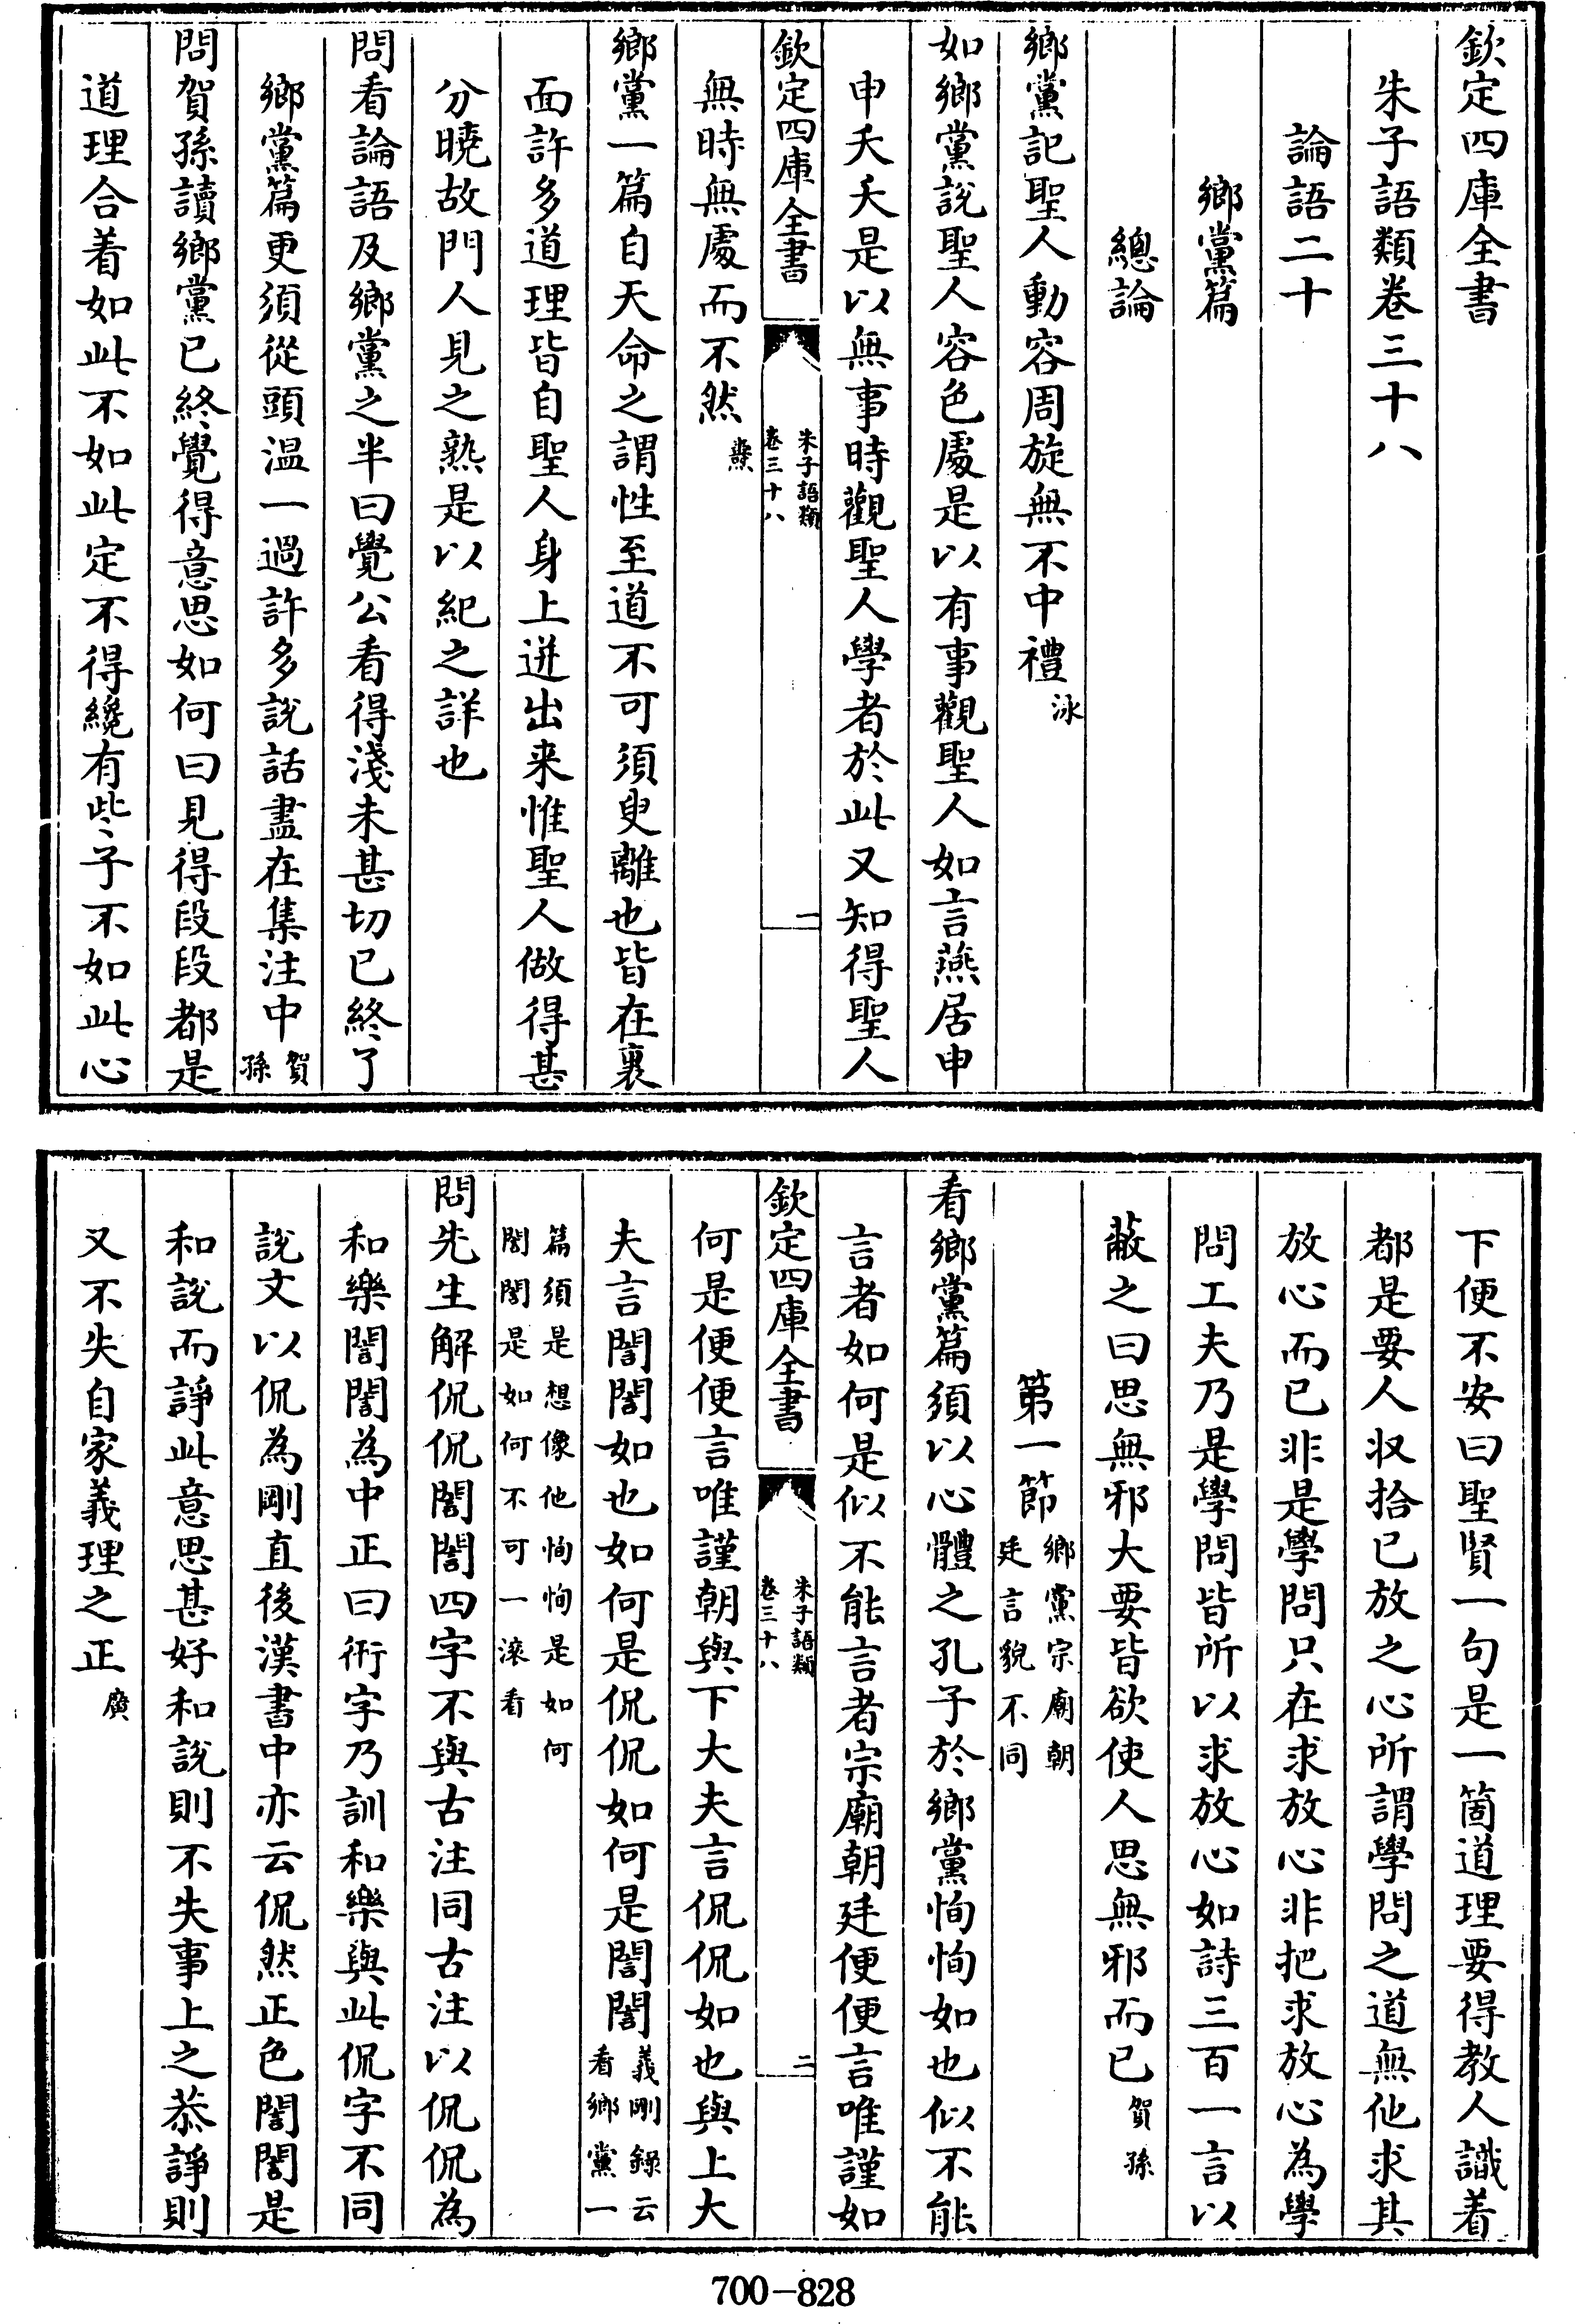 欽定四庫全書
朱子語類卷三十八
論語二十
鄉黨篇
總論
鄉黨記聖人動容周旋無不中禮泳
如鄉黨說聖人容色處是以有事觀聖人如言燕居申
申夭夭是以無事時觀聖人學者於此又知得聖人
欽定四庫全書
朱子語類
卷三十八
一
無時無處而不然㷍
鄉黨一篇自天命之謂性至道不可須臾離也皆在裏
面許多道理皆自聖人身上迸出来惟聖人做得甚
分曉故門人見之熟是以紀之詳也
問看論語及鄉黨之半曰覺公看得淺未甚切已終了
鄉黨篇更須從頭温一過許多說話盡在集注中賀孫
問賀孫讀鄉黨已終覺得意思如何曰見得段段都是
道理合着如此不如此定不得纔有些子不如此心
下便不安曰聖賢一句是一箇道理要得教人識着
都是要人收拾已放之心所謂學問之道無他求其
放心而已非是學問只在求放心非把求放心為學
問工夫乃是學問皆所以求放心如詩三百一言以
蔽之曰思無邪大要皆欲使人思無邪而已賀孫
第一節鄉黨宗廟朝
廷言貌不同
看鄉黨篇須以心體之孔子於鄉黨恂恂如也似不能
言者如何是似不能言者宗廟朝廷便便言唯謹如
欽定四庫全書
朱子語類
卷三十八
二
何是便便言唯謹朝與下大夫言侃侃如也與上大
夫言誾誾如也如何是侃侃如何是誾誾義剛録云
看鄉黨一
篇須是想像他恂恂是如何
誾誾是如何不可一滚看
問先生解侃侃誾誾四字不與古注同古注以侃侃為
和樂誾誾為中正曰衎字乃訓和樂與此侃字不同
說文以侃為剛直後漢書中亦云侃然正色誾誾是
和說而諍此意思甚好和說則不失事上之恭諍則
又不失自家義理之正廣
700-828